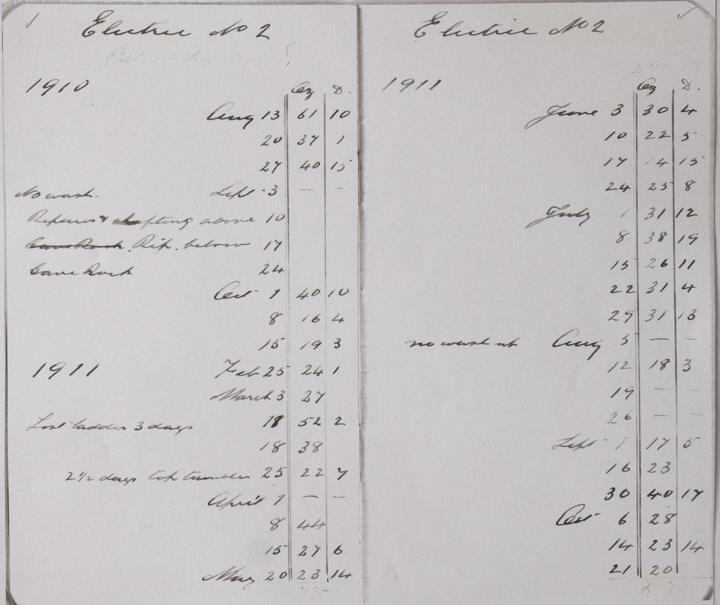 Electric No 2
1910 Oz D.
Aug 13 61 10
20 37 1
27 40 15
No wash. Sept 3 — —
Repairs & shafting above 10
Cave Rock. Rep. below 17
Cave Rock 24
Oct 1 40 10
8 16 4
15 19 3
1911 Feb 25 24 1
March 3 27
Lost ladder 3 days 18 52 2
18 38
2½ days top tumbler 25 22 7
April 1 — —
8 44
15 27 6
May 20 23 14
Electric No 2
1911 Oz D.
June 3 30 4
10 22 5
17 14 15
24 25 8
July 1 31 12
8 38 19
15 26 11
22 31 4
29 31 13
no wash up Aug 5 — —
12 18 3
19 — —
26 — —
Sept 1 17 5
16 23
30 40 17
Oct 6 28
14 23 14
21 20